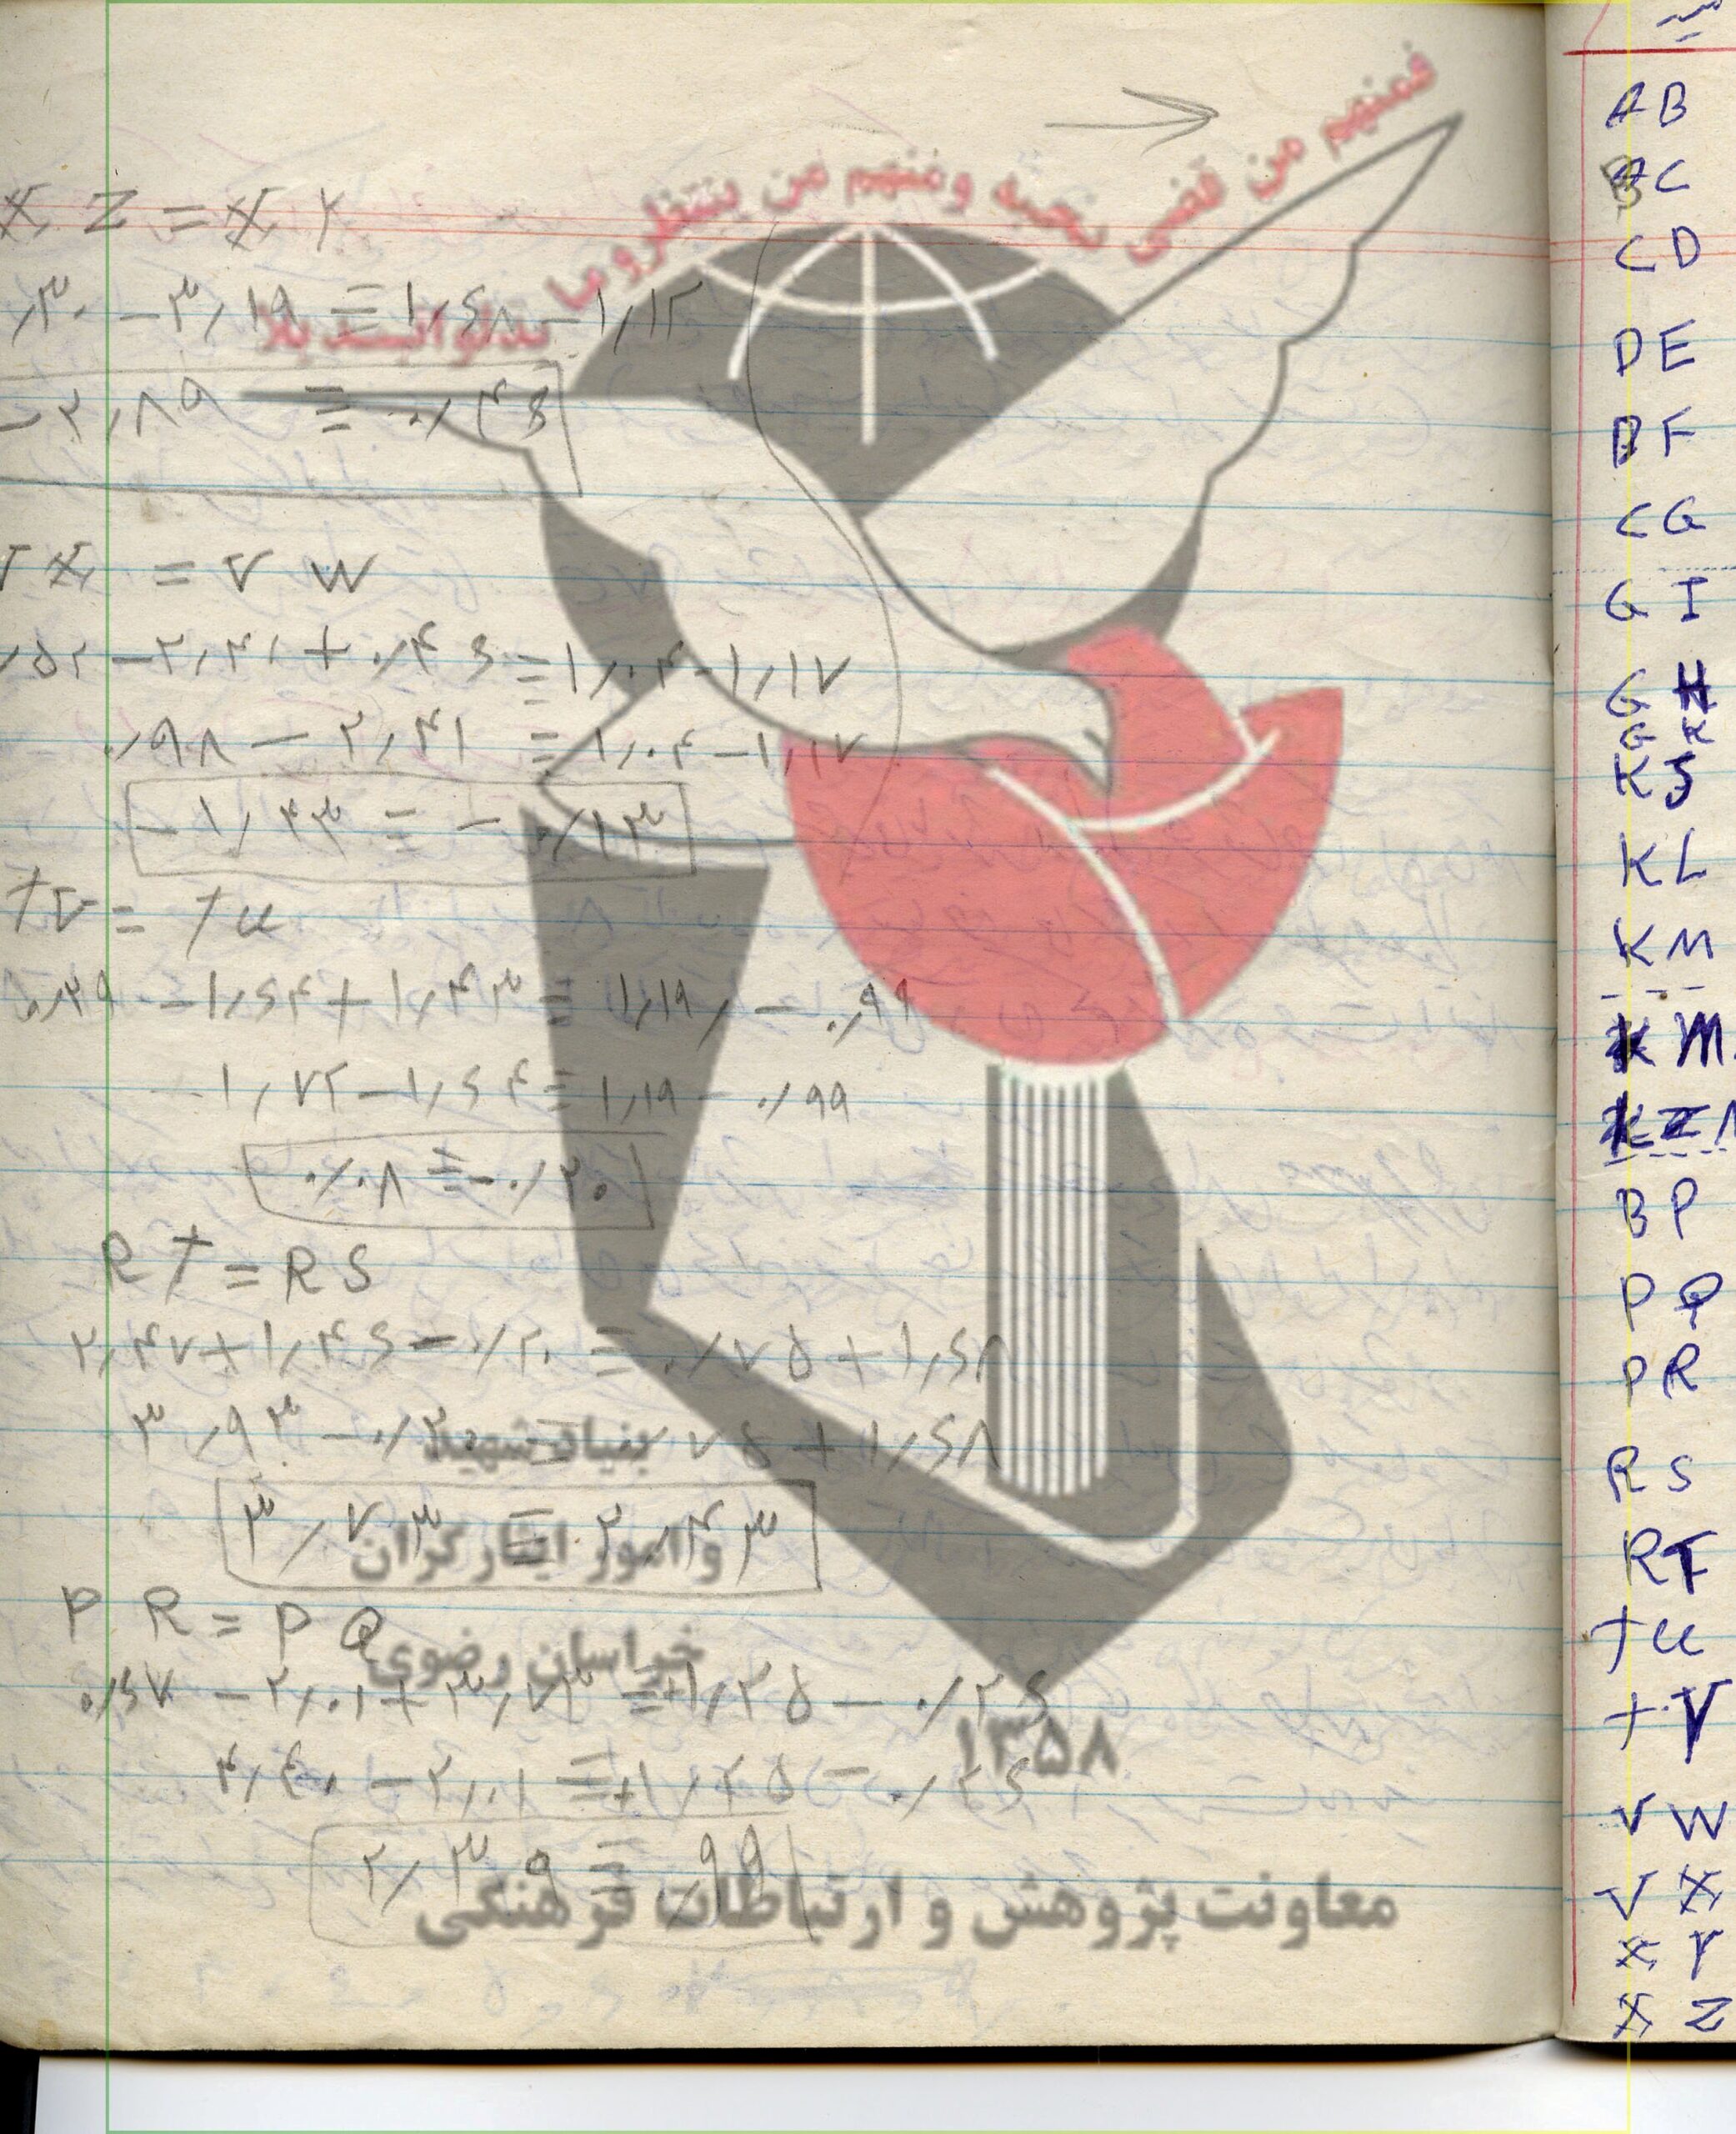 فمنهم من قضی نحبه ومنهم من ینتظر وما بدلوا تبدیلا
X Z = X Y
۰٫۳۰ - ۳٫۱۹ = ۱٫۶۸ - ۱٫۱۲
- ۲٫۸۹ = ۰٫۴۶
V X = V W
- ۲٫۴۱ + ۰٫۴۶ = ۱٫۰۴ - ۱٫۱۷
۰٫۹۸ - ۲٫۴۱ = ۱٫۰۴ - ۱٫۱۷
- ۱٫۴۳ = - ۰٫۱۳
T V = T U
۰٫۲۹ - ۱٫۶۴ + ۱٫۴۳ = ۱٫۱۹ - ۰٫۹۹
۱٫۷۲ - ۱٫۶۴ = ۱٫۱۹ - ۰٫۹۹
۰٫۰۸ = - ۰٫۲۰
R T = R S
۲٫۴۷ + ۱٫۴۶ - ۰٫۲۰ = ۰٫۷۵ + ۱٫۶۸
۳٫۹۳ - ۰٫۲۰ = ۰٫۷۵ + ۱٫۶۸
۳٫۷۳ = ۲٫۴۳
P R = P Q
۰٫۶۷ - ۲٫۰۱ + ۳٫۷۳ = +۱٫۲۵ - ۰٫۲۶
۴٫۴۰ - ۲٫۰۱ = +۱٫۲۵ - ۰٫۲۶
۲٫۳۹ = ۰٫۹۹
بنیاد شهید
و امور ایثارگران
خراسان رضوی
۱۳۵۸
معاونت پژوهش و ارتباطات فرهنگی
A B
B C
C D
D E
B F
C G
G I
G H
G K
K J
K L
K M
K M
B P
P Q
P R
R S
R T
T U
T V
V W
V X
X Y
X Z